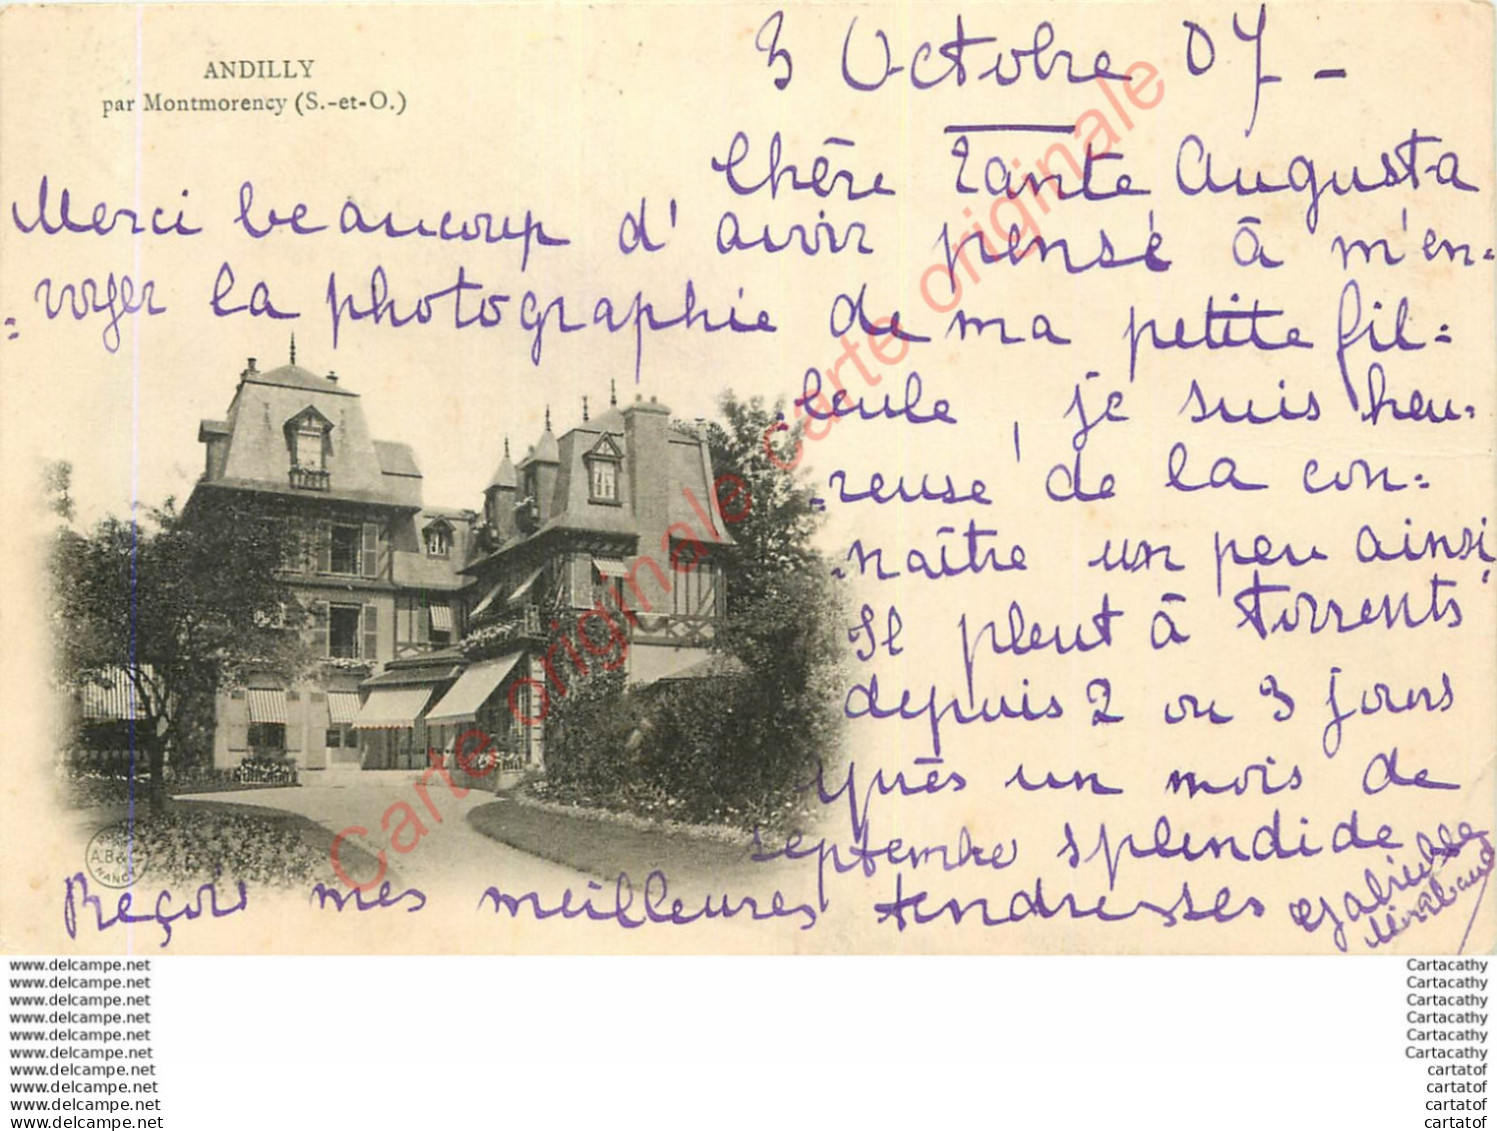 ANDILLY
par Montmorency (S.-et-O.)
3 Octobre 07 -
Chère Tante Augusta
Merci beaucoup d'avoir pensé à m'en-
-voyer la photographie de ma petite fil=
-leule, je suis heu-
-reuse de la con-
-naître un peu ainsi
Il pleut à torrents
depuis 2 ou 3 jours
après un mois de
septembre splendide
Reçois mes meilleures tendresses
Gabrielle
Mirabaud
A.B.&C
NANCY
Carte originale carte originale
www.delcampe.net
www.delcampe.net
www.delcampe.net
www.delcampe.net
www.delcampe.net
www.delcampe.net
www.delcampe.net
www.delcampe.net
www.delcampe.net
www.delcampe.net
Cartacathy
Cartacathy
Cartacathy
Cartacathy
Cartacathy
Cartacathy
cartatof
cartatof
cartatof
cartatof